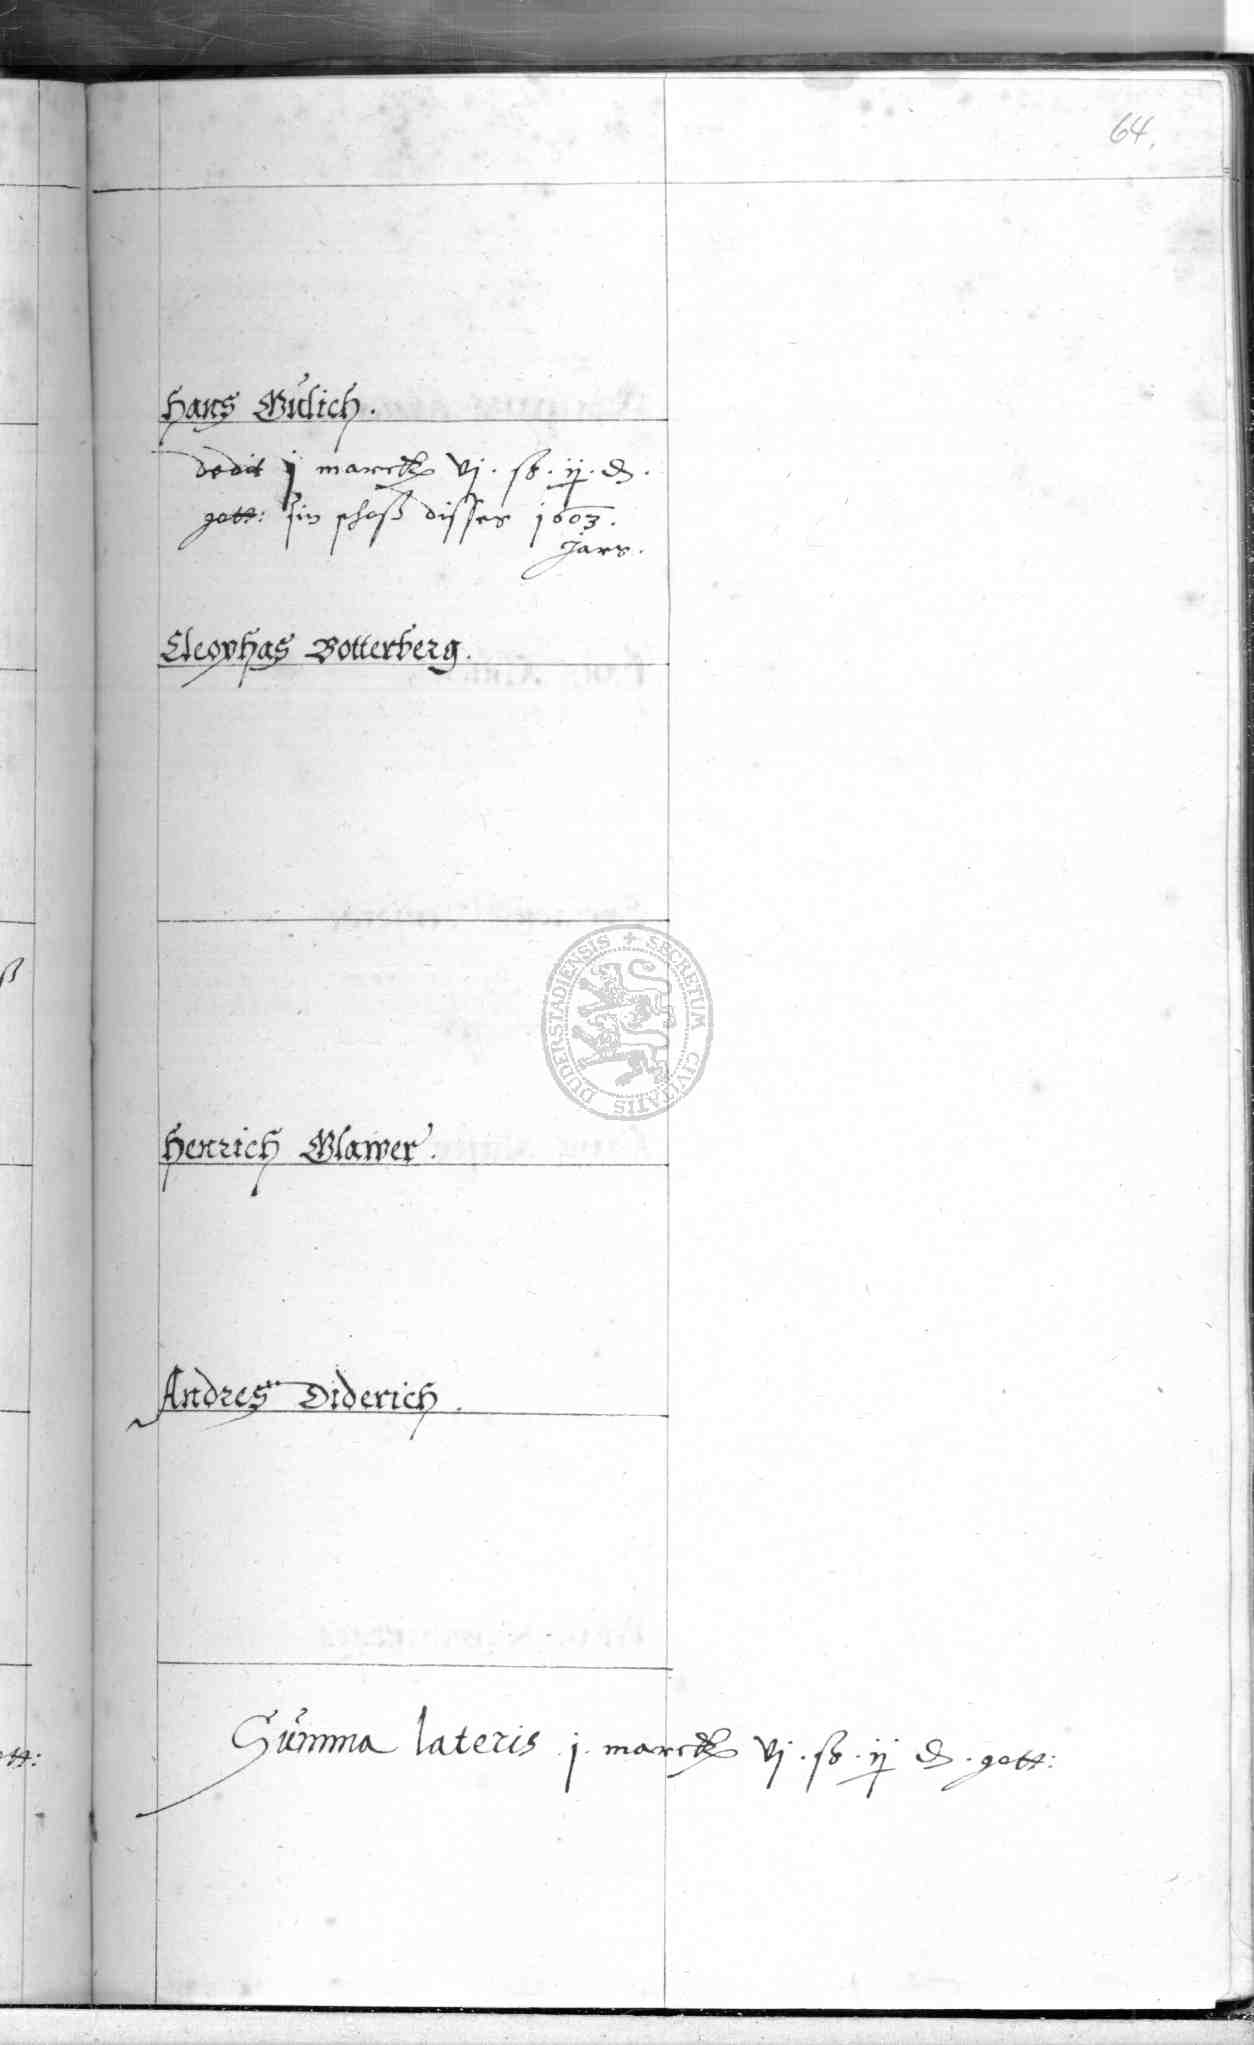 64.
Hans Gülich.
dedit j marck vj. ß. ij. d.
gott: sin schoß disses 1603.
jars.
Cleophas Botterberg.
SECRETUM CIVITATIS DUDERSTADIENSIS
Henrich Blawer.
Andres Diderich.
Summa lateris j. marck vj. ß. ij d. gott: